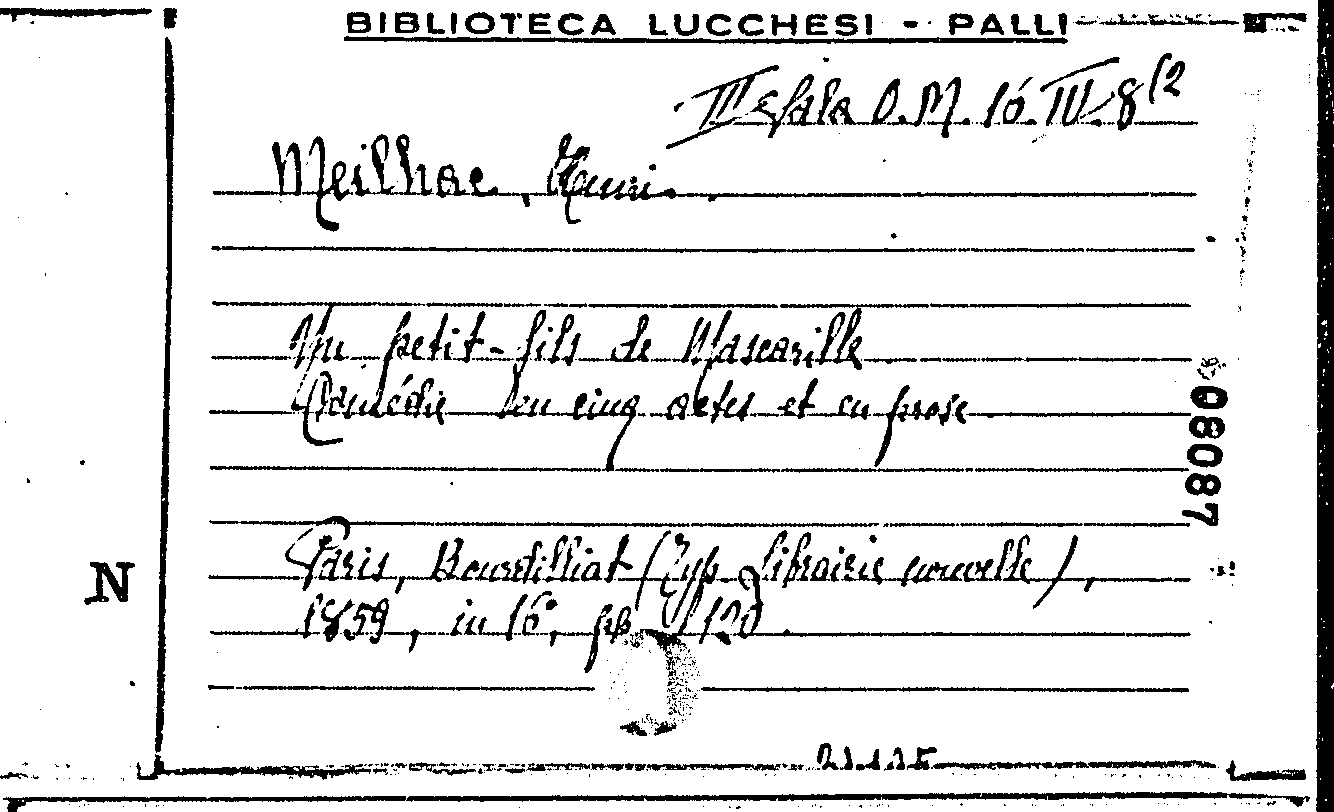 BIBLIOTECA LUCCHESI - PALLI
III sala O. M. 16. IV. 8 (2
Meilhac, Henri.
Un petit-fils de Mascarille
Comédie en cinq actes et en prose
08087
Paris, Bourdilliat (Typ. librairie nouvelle),
N
1859, in 16°, pp. 120.